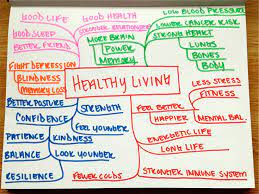 GOOD LIFE
GOOD HEALTH
STRONGER RELATIONSHIP
GOOD SLEEP
BETTER FRIEND
LOW BLOOD PRESSURE
LOWER CANCER RISK
STRONG HEART
LUNGS
BONES
BODY
MORE BRAIN
POWER
MEMORY
FIGHT DEPRESSION
BLINDNESS
MEMORY LOSS
HEALTHY LIVING
LESS STRESS
FITNESS
FEEL BETTER
HAPPIER
MENTAL BAL.
BETTER POSTURE
STRENGTH
CONFIDENCE
FEEL YOUNGER
PATIENCE
KINDNESS
BALANCE
LOOK YOUNGER
RESILIENCE
ENERGETIC LIFE
LONG LIFE
FEWER COLDS
STRONGER IMMUNE SYSTEM